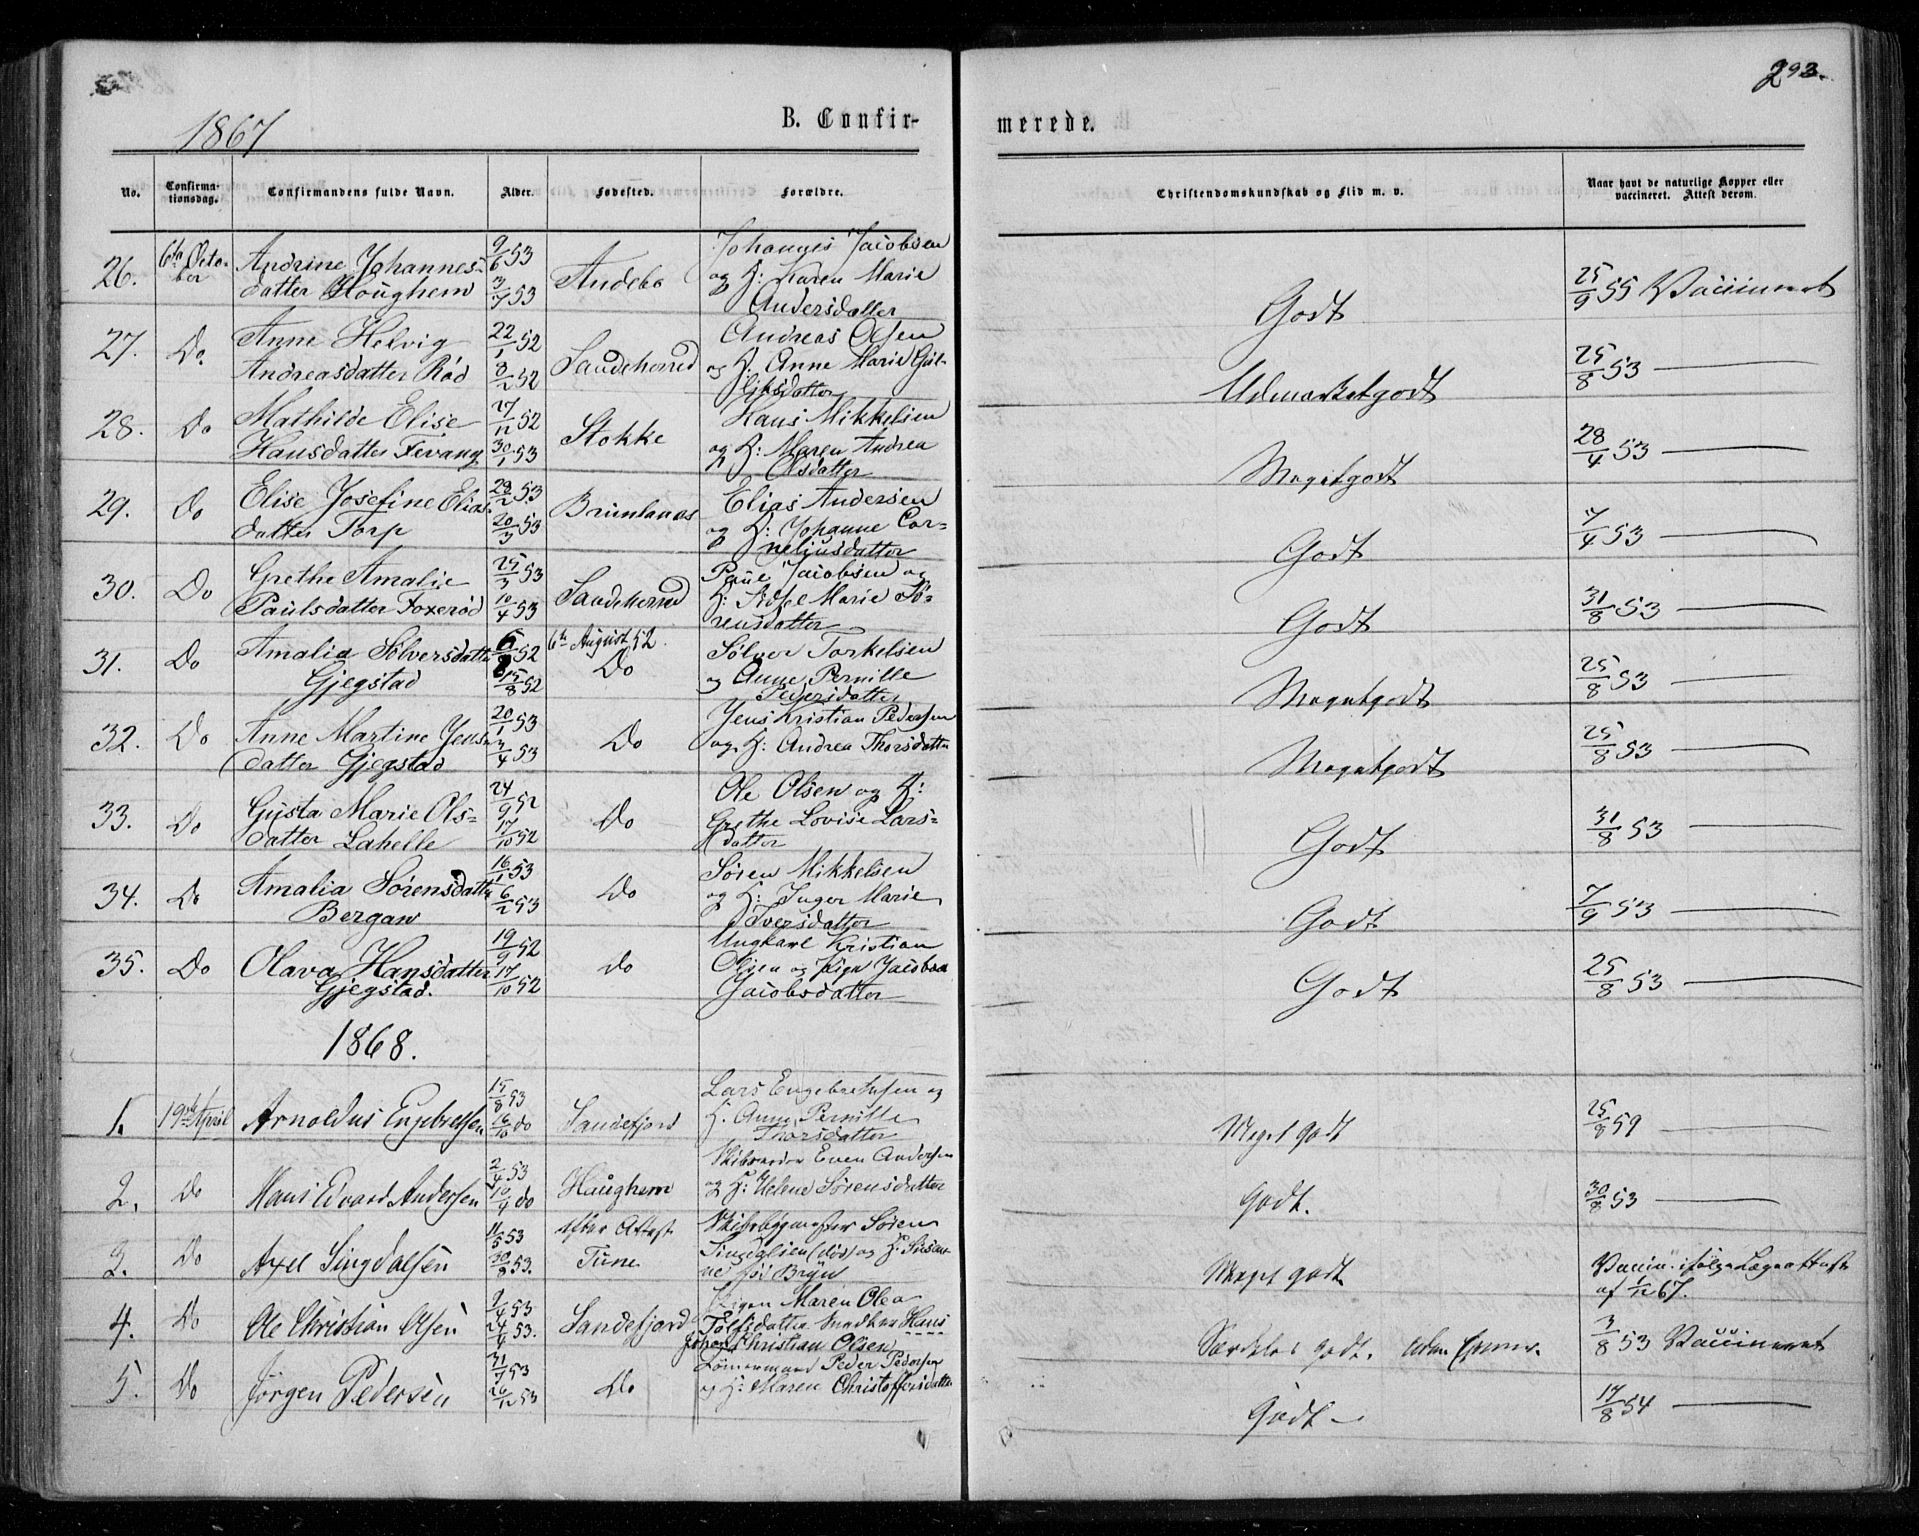 293.
1867
B. Confir-
merede.
No.
Confirma-
tionsdag.
Confirmandens fulde Navn.
Alder.
Fødested.
Forældre.
Christendomskundskab og Flid m. v.
Naar havt de naturlige Kopper eller
vaccineret. Attest derom.
26. 6te Octo-
ber
Andrine Johannes-
datter Houghem
9/6 53
3/7 53
Andebo
Johannes Jacobsen
og H: Karen Marie
Andersdatter
Godt
25/9 55 Vaccineret
27. Do
Anne Helvig
Andreasdatter Rød
22/1 52
8/2 52
Sandeherred
Andreas Olsen
og H: Anne Marie Gul-
liksdatter
Udmærketgodt
25/8 53 —
28. Do
Mathilde Elise
Hansdatter Fevang
27/12 52
30/1 53
Stokke
Hans Mikkelsen
og H: Maren Andrea
Olsdatter
Megetgodt
28/4 53 —
29. Do
Elise Josefine Elias-
datter Torp
28/2 53
20/3 53
Brunlanæs
Elias Andersen
og H: Johanne Cor-
neliusdatter
Godt
7/4 53 —
30. Do
Grethe Amalie
Paulsdatter Foxerød
25/3 53
10/4 53
Sandeherred
Jacobsen og
H: Marie Sø-
rensdatter
Godt
31/8 53 —
31. Do
Amalia Sølversdatter
Gjegstad
6/8 52
15/8 52
6te August 52.
Do
Sølver Torkelsen
og Anne Pernille
Pedersdatter
Megetgodt
25/8 53 —
32. Do
Anne Martine Jens-
datter Gjegstad
20/1 53
3/4 53
Do
Jens Kristian Pedersen
og H: Andrea Thorsdatter
Megetgodt
25/8 53 —
33. Do
Gusta Marie Ols-
datter Lahelle
24/9 52
17/10 52
Do
Ole Olsen og H:
Grethe Lovise Lars-
datter
Godt
31/8 53 —
34. Do
Amalia Sørensdatter
Bergan
16/1 53
6/2 53
Do
Søren Mikkelsen
og H: Inger Marie
Iversdatter
Godt
7/9 53 —
35. Do
Olava Hansdatter
Gjegstad.
19/9 52
17/10 52
do
Ungkarl Kristian
Olsen og Pigen Jacobea
Jacobsdatter
Godt
25/8 53 —
1868.
1. 19de April
Arnoldus Engebretsen
15/8 53
16/10 do
Sandefjord
Lars Engebrethsen og
H. Anne Pernille
Thorsdatter
Meget godt
25/8 59 —
2. Do
Hans Edvard Andersen
2/4 53
10/4 do
Haughem
Even Andersen
og H: Helene Sørensdatter
Godt.
30/8 53 —
3. Do
Axel Singdalsen
11/5 53
30/8 53.
efter Attest
Tune
Skibsbygmester Søren
Singdalsen (død) og H. Susan-
ne
Meget godt
Vaccin. ifølge Lægeattest
af 1/12 67.
4. Do
Ole Christian Olsen
2/4 53
24/4 53.
Sandefjord
Pigen Maren Olea
Snedker Hans
Johan Christian Olsen
Særdeles godt.
3/8 53 Vaccineret
5. Do
Jørgen Pedersen
31/7 53
26/12 53
Do
Tømmermand Peder Pedersen
og H: Maren Christoffersdatter
Godt —
17/8 54 —